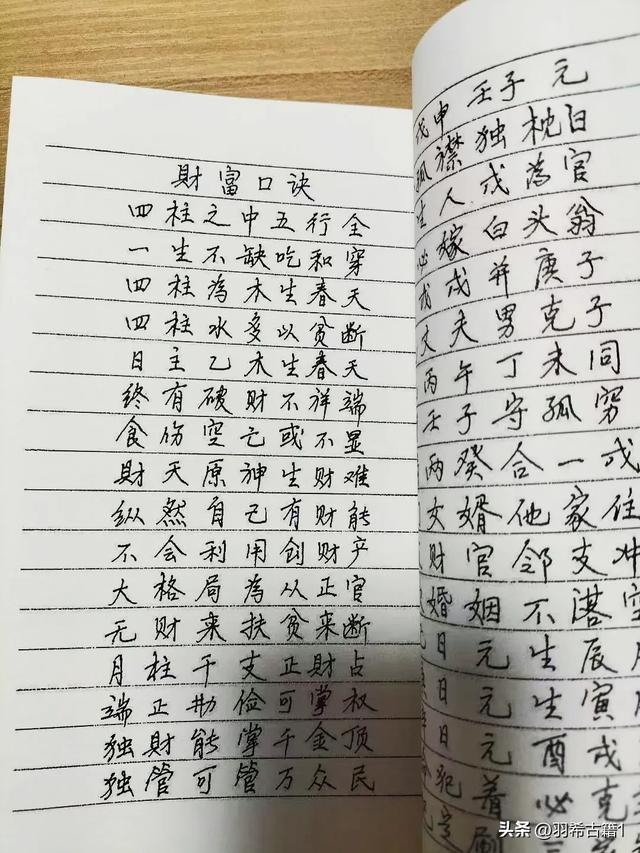 財富口诀
四柱之中五行全
一生不缺吃和穿
四柱為木生春天
四柱水多以贫断
日主乙木生春天
终有破财不祥端
食伤空亡或不显
財天原神生财难
纵然自己有财能
不会利用创财产
大格局為从正官
无财来扶贫来断
月柱干支正財占
端正勤俭可掌权
独財能掌千金顶
独管可管万众民
戊申壬子元
孤襟独枕白
生人戌為官
必嫁白头翁
戊戌并庚子
丈夫男克子
丙午丁未同
壬子守孤穷
两癸合一戊
女婿他家住
财官邻支冲
婚姻不湛空
日元生辰
日元生寅
日元酉戌
犯着必克
头条 @羽希古籍1